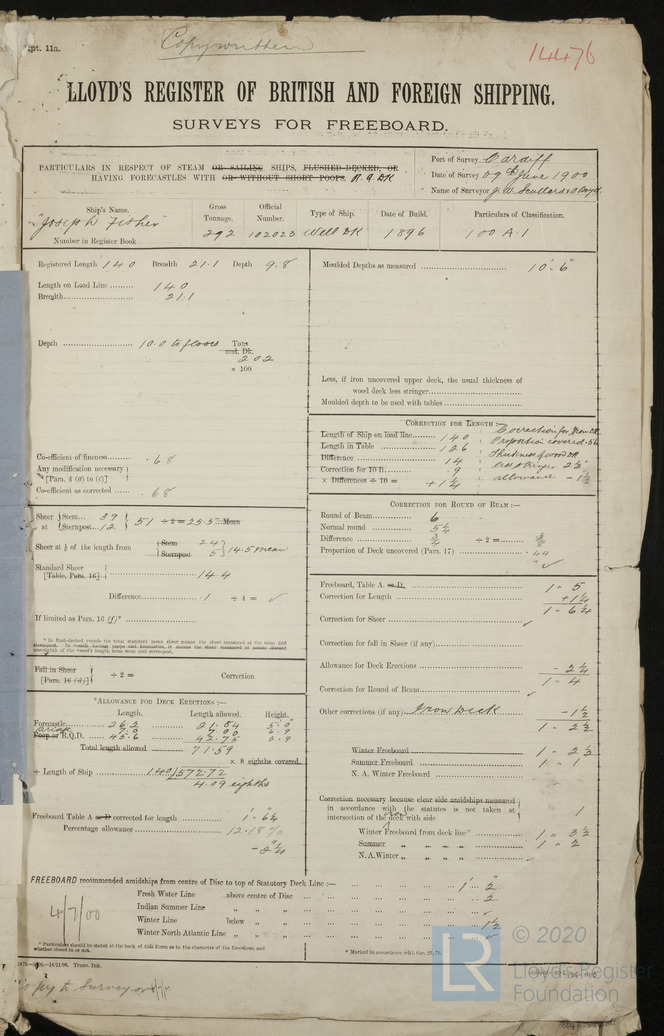 pt. 11a.
Copywritten
14476
LLOYD'S REGISTER OF BRITISH AND FOREIGN SHIPPING.
SURVEYS FOR FREEBOARD.
PARTICULARS IN RESPECT OF STEAM OR SAILING SHIPS, FLUSHED-DECKED, OR
HAVING FORECASTLES WITH OR WITHOUT SHORT POOPS. R.Q.DK
Port of Survey Cardiff
Date of Survey 29th June 1900
Name of Surveyor
Ship's Name. Gross Tonnage. Official Number. Type of Ship. Date of Build. Particulars of Classification.
"Joseph Fisher" 292 102023 Well DK 1896 100 A.1
Number in Register Book
Registered Length 140 Breadth 21.1 Depth 9.8
Length on Load Line 140
Breadth 21.1
Depth 10.0 to floors Tons und. Dk.
202
× 100
Co-efficient of fineness .68
Any modification necessary
[Para. 4 (a) to (e)]
Co-efficient as corrected .68
Sheer at Stem 39
Sternpost 12 51 ÷ 2 = 25.5 Mean
Sheer at ⅛ of the length from Stem 24
Sternpost 5 14.5 mean
Standard Sheer
[Table, Para. 16] 14.4
Difference .1 ÷ 4 = ✓
If limited as Para. 16 (f)*
* In flush-decked vessels the total standard mean sheer means the sheer measured at the stem and
Fall in Sheer
[Para. 16 (d)] ÷ 2 = Correction
*ALLOWANCE FOR DECK ERECTIONS:—
Length. Length allowed. Height.
Forecastle 26.2 21.84 5.0
Bridge 7.0 7.00 6.9
Poop or R.Q.D. 45.6 42.75 3.9
Total length allowed 71.59
× 8 eighths covered.
÷ Length of Ship 140 572.72
4.09 eighths
Freeboard Table A or D corrected for length 1 - 6¼
Percentage allowance 12.18 %
- 2¼
Moulded Depths as measured 10' - 6"
Less, if iron uncovered upper deck, the usual thickness of
wood deck less stringer
Moulded depth to be used with tables
CORRECTION FOR LENGTH:—
Length of Ship on load line 140
Length in Table 126
Difference 14
Correction for 10 ft. .9
× Differences ÷ 10 = +1¼
Correction for Iron DK
Proportion covered .56
Thickness of wood DK
less stringer 2½"
allowance - 1½
CORRECTION FOR ROUND OF BEAM:—
Round of Beam 6
Normal round 5¼
Difference ¾ ÷ 2 = ⅜
Proportion of Deck uncovered (Para. 17) .44
✓
Freeboard, Table A. or D. 1 - 5
Correction for Length +1¼
1 - 6¼
Correction for Sheer ✓
Correction for fall in Sheer (if any)
Allowance for Deck Erections - 2¼
1 - 4
Correction for Round of Beam ✓
Other corrections (if any) Iron Deck - 1½
1 - 2½
Winter Freeboard 1 - 2½
Summer Freeboard 1 - 1
N. A. Winter Freeboard
Correction necessary because clear side amidships measured
in accordance with the statutes is not taken at
intersection of the deck with side 1
Winter Freeboard from deck line* 1 - 3½
Summer „ „ „ „ 1 - 2
N.A. Winter „ „ „ „ ✓
FREEBOARD recommended amidships from centre of Disc to top of Statutory Deck Line:— 1' - 2"
Fresh Water Line above centre of Disc 2
Indian Summer Line „ „ ✓
Winter Line below „ „ 1½
Winter North Atlantic Line „ „ ✓
4/7/00
* Particulars should be stated at the back of this Form as to the character of the Erections, and
whether closed in or not.
* Marked in accordance with
Trans. Ink.
© 2020
LR
Lloyd's Register
Foundation